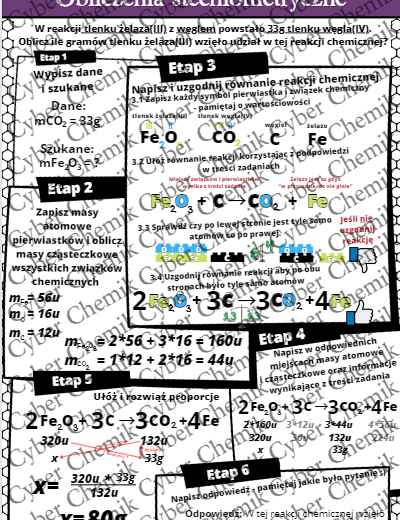 Obliczenia stechiometryczne
W reakcji tlenku żelaza(III) z węglem powstało 33g tlenku węgla(IV).
Oblicz ile gramów tlenku żelaza(III) wzięło udział w tej reakcji chemicznej?
Etap 1
Wypisz dane
i szukane
Dane:
mCO₂ = 33g
Szukane:
mFe₂O₃ = ?
Etap 2
Zapisz masy
atomowe
pierwiastków i oblicz
masy cząsteczkowe
wszystkich związków
chemicznych
m = 56u
m = 16u
m = 12u
m = 2*56 + 3*16 = 160u
m = 1*12 + 2*16 = 44u
Etap 3
Napisz i uzgodnij równanie reakcji chemicznej
3.1 Zapisz każdy symbol pierwiastka i związek chemiczny
pamiętaj o wartościowości
tlenek żelaza(III) tlenek węgla(IV) węgiel żelazo
Fe₂O₃ CO₂ C Fe
3.2 Ułóż równanie reakcji korzystając z podpowiedzi
w treści zadania
Fe₂O₃ + C → CO₂ + Fe
3.3 Sprawdź czy po lewej stronie jest tyle samo
atomów co po prawej
Jeśli nie
uzgodnij
reakcję
3.4 Uzgodnij równanie reakcji aby po obu
stronach było tyle samo atomów
2Fe₂O₃ + 3C → 3CO₂ + 4Fe
Etap 4
Napisz w odpowiednich
miejscach masy atomowe
i cząsteczkowe oraz informacje
wynikające z treści zadania
2Fe₂O₃ + 3C → 3CO₂ + 4Fe
2*160u 3*12u 3*44u 4*56u
320u 36u 132u 224u
x 33g
Etap 5
Ułóż i rozwiąż proporcje
2Fe₂O₃ + 3C → 3CO₂ + 4Fe
320u 132u
x 33g
x = 320u * 33g
132u
x = 80g
Etap 6
Napisz odpowiedź - pamiętaj jakie było pytanie :)
Odpowiedź: W tej reakcji chemicznej wzięło